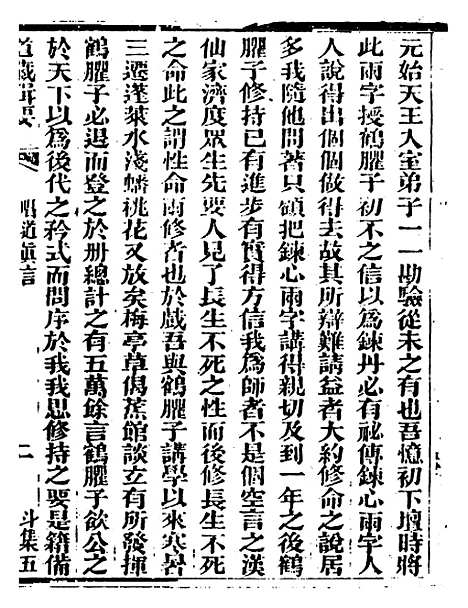 元始天王入室弟子一一勘驗從未之有也吾憶初下壇時將
此兩字授鶴臞子初不之信以爲鍊丹必有祕傳鍊心兩字人
人說得出個個做得去故其所辯難請益者大約修命之說居
多我隨他問著只顧把鍊心兩字講得親切及到一年之後鶴
臞子修持已有進步有實得方信我爲師者不是個空言之漢
仙家濟度眾生先要人見了長生不死之性而後修長生不死
之命此之謂性命兩修者也於戲吾與鶴臞子講學以來寒暑
三遷蓬萊水淺蟠桃花又放矣梅亭草偈蕉館談立有所發揮
鶴臞子必退而登之於册總計之有五萬餘言鶴臞子欲公之
於天下以爲後代之矜式而問序於我我思修持之要是籍備
道藏輯要 唱道眞言 二 斗集五